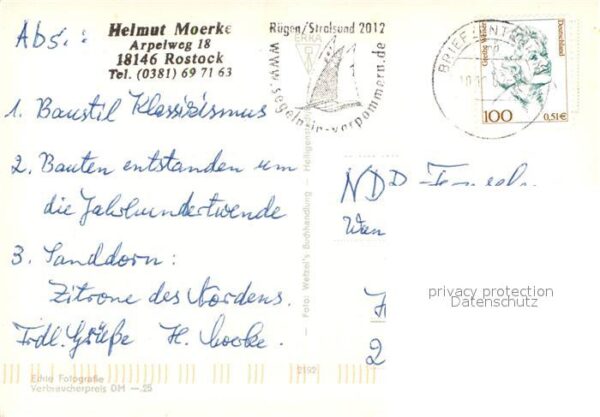 Abs.:
Helmut Moerke
Arpelweg 18
18146 Rostock
Tel. (0381) 69 71 63
Rügen/Stralsund 2012
www.segeln-in-vorpommern.de
BRIEF
Deutschland
100
0,51€
1. Baustil Klassizismus
2. Bauten entstanden um
die Jahrhundertwende
3. Sanddorn:
Zitrone des Nordens.
Frdl. Grüße H. Moerke.
NDR
privacy protection
Datenschutz
2
Foto: Wetzel's Buchhandlung
2192
Echte Fotografie
Verbraucherpreis DM —.25